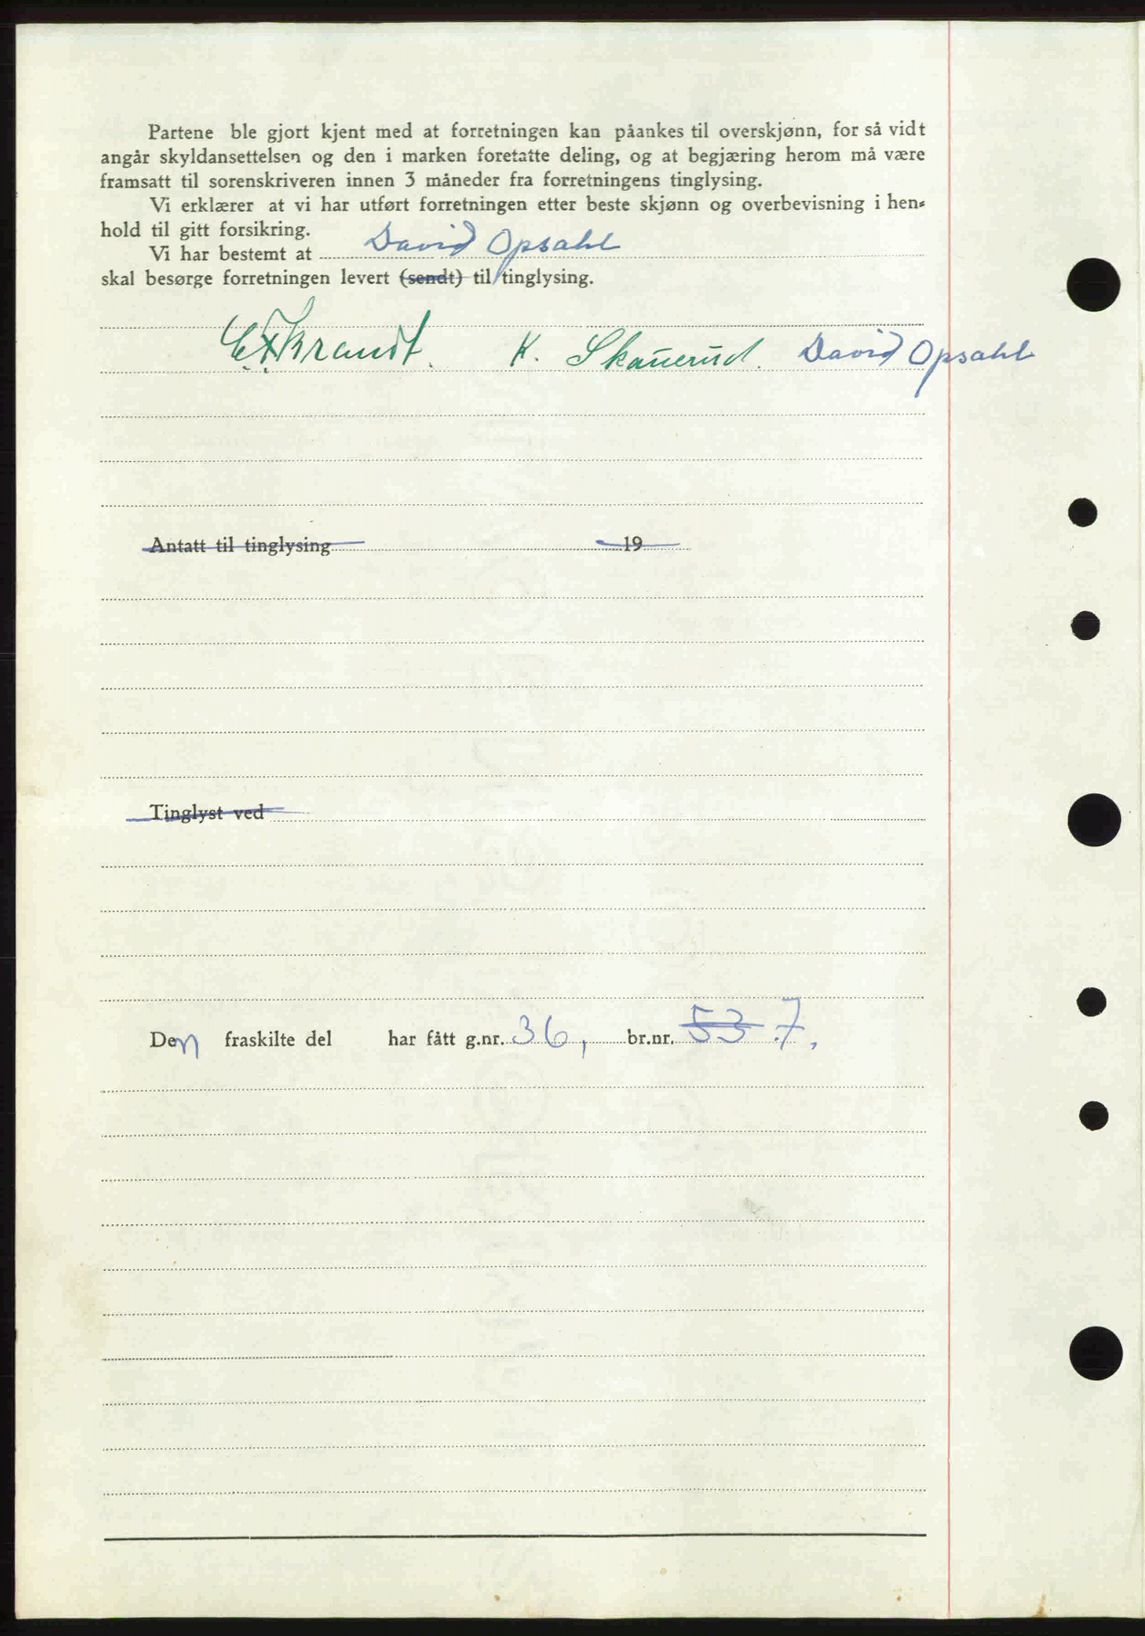 Partene ble gjort kjent med at forretningen kan påankes til overskjønn, for så vidt
angår skyldansettelsen og den i marken foretatte deling, og at begjæring herom må være
framsatt til sorenskriveren innen 3 måneder fra forretningens tinglysing.
Vi erklærer at vi har utført forretningen etter beste skjønn og overbevisning i hen-
hold til gitt forsikring.
Vi har bestemt at David Opsahl
skal besørge forretningen levert (sendt) til tinglysing.
K. Skauerud. David Opsahl
Antatt til tinglysing 19
Tinglyst ved
Den fraskilte del har fått g.nr. 36, br.nr. 53 7.